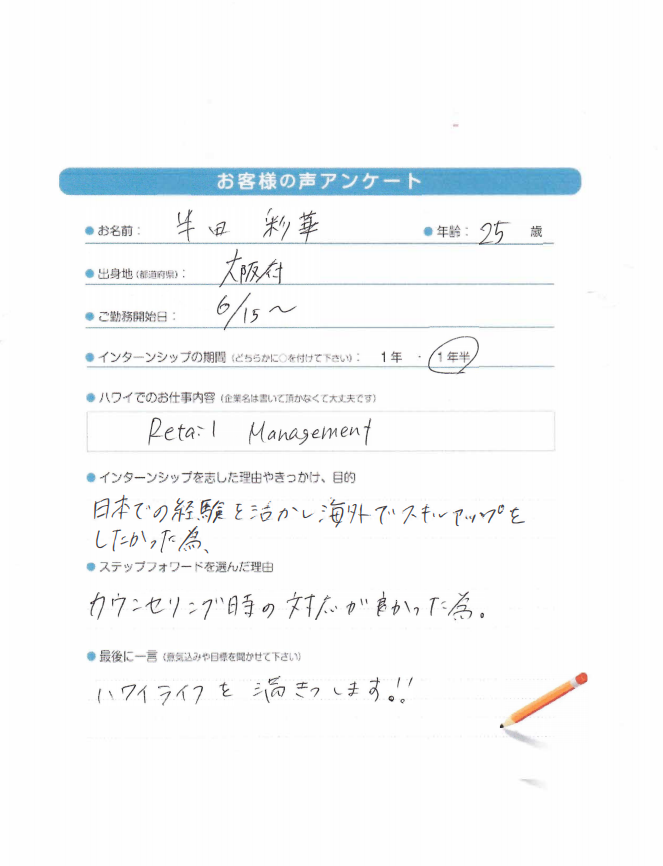 お客様の声アンケート
お名前： 半田 彩華 年齢： 25 歳
出身地(都道府県)： 大阪府
ご勤務開始日： 6/15〜
インターンシップの期間(どちらかに○を付けて下さい)： 1年 ・ 1年半
ハワイでのお仕事内容(企業名は書いて頂かなくて大丈夫です)
Retail Management
インターンシップを志した理由やきっかけ、目的
日本での経験を活かし海外でスキルアップを
したかった為、
ステップフォワードを選んだ理由
カウンセリング時の対応が良かった為。
最後に一言(意気込みや目標を聞かせて下さい)
ハワイライフを満きつします。!!